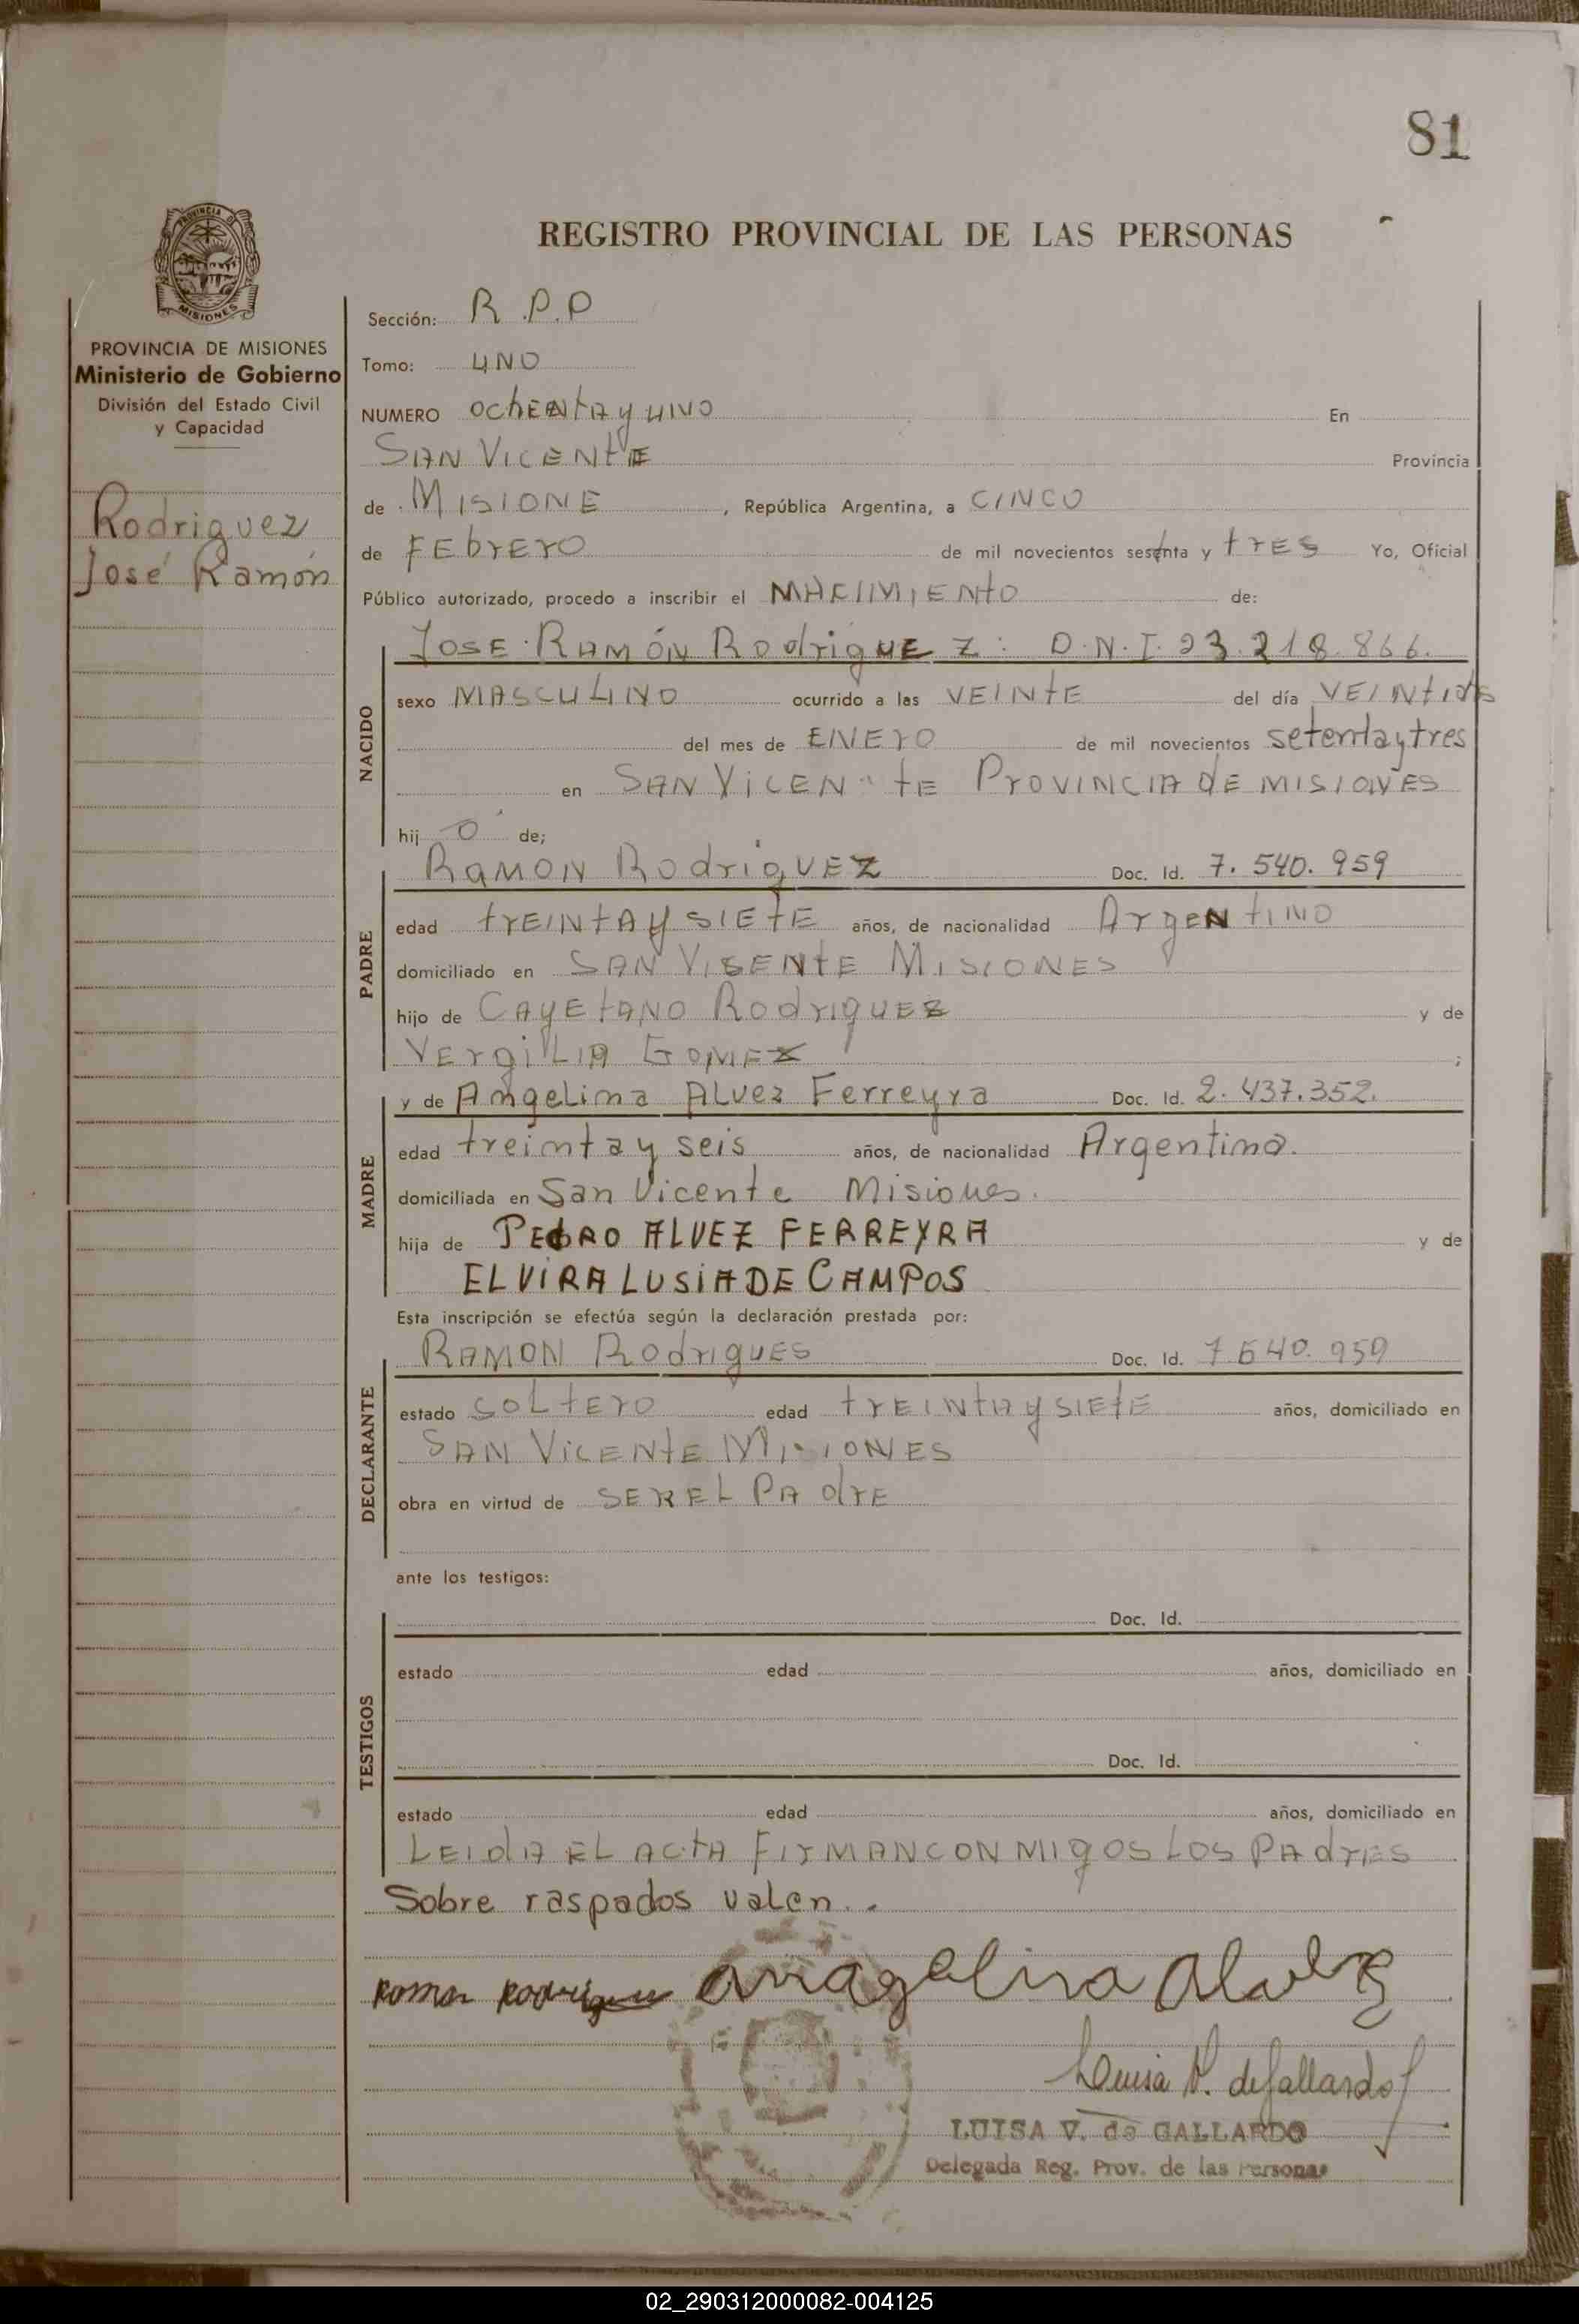 81
REGISTRO PROVINCIAL DE LAS PERSONAS
PROVINCIA DE MISIONES
Ministerio de Gobierno
División del Estado Civil
y Capacidad
Rodriguez
José Ramón
Sección: R.P.P
Tomo: UNO
NUMERO OchENtA y UNO En
SAN VICENtE Provincia
de MISIONE, República Argentina, a CINCO
de FEbrERO de mil novecientos sesenta y trES Yo, Oficial
Público autorizado, procedo a inscribir el de:
NACIDO
JOSE RAMÓN ROdrigUEZ: D.N.I. 23.218.866.
sexo MASCULINO ocurrido a las VEINtE del día VEINtidós
del mes de ENERO de mil novecientos setentaytres
en SAN VICEN tE PrOVINCIA dE MISIONES
hij o de;
PADRE
RAMON ROdrigUEZ Doc. Id. 7.540.959
edad trEINtAY SIEtE años, de nacionalidad ArgENtINO
domiciliado en SAN VISENtE MISIONES
hijo de CAYEtANO ROdrigUEZ y de
VErgiLIA GOMEZ ;
MADRE
y de Angelina ALvez Ferreyra Doc. Id. 2.437.352.
edad treinta y seis años, de nacionalidad Argentina.
domiciliada en San Vicente Misiones.
hija de PEDRO ALVEZ FERREYRA y de
ELVIRA LUSIA DE CAMPOS
Esta inscripción se efectúa según la declaración prestada por:
DECLARANTE
RAMON ROdrigUES Doc. Id. 7.540.959
estado SOLtERO edad trEINtAYSIEtE años, domiciliado en
SAN VICENtE MISIONES
obra en virtud de SER EL PAdrE
ante los testigos:
TESTIGOS
Doc. Id.
estado edad años, domiciliado en
Doc. Id.
estado edad años, domiciliado en
LEIdA EL ACtA FIrMANCONMIgOS LOS PAdrES
Sobre raspados valen..
anagelina Alvez
Luisa V. de Gallardo
LUISA V. de GALLARDO
Delegada Reg. Prov. de las Personas
02_290312000082-004125